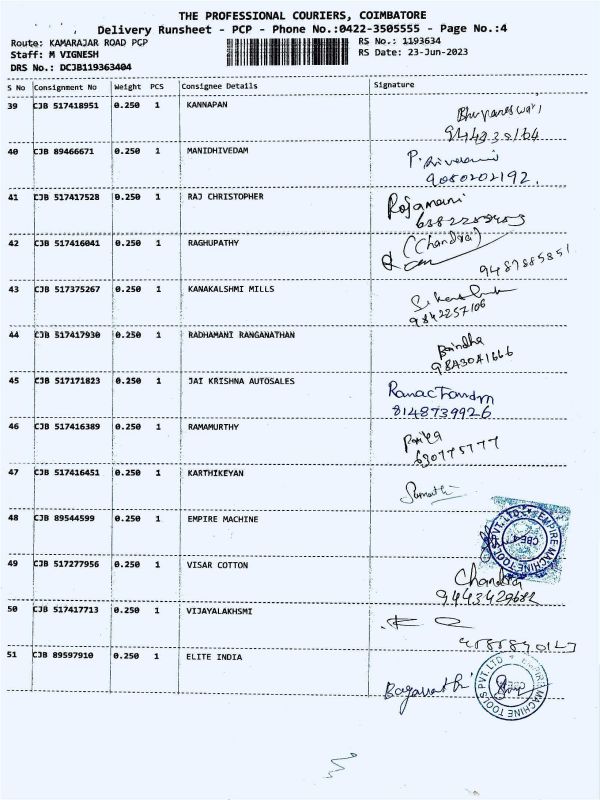 THE PROFESSIONAL COURIERS, COIMBATORE
Delivery Runsheet - PCP - Phone No.:0422-3505555 - Page No.:4
Route: KAMARAJAR ROAD PCP RS No.: 1193634
Staff: M VIGNESH RS Date: 23-Jun-2023
DRS No.: DCJB119363404
S No Consignment No Weight PCS Consignee Details Signature
39 CJB 517418951 0.250 1 KANNAPAN
40 CJB 89466671 0.250 1 MANIDHIVEDAM
9080202192.
41 CJB 517417528 0.250 1 RAJ CHRISTOPHER Rajamani
42 CJB 517416041 0.250 1 RAGHUPATHY (Chandra)
43 CJB 517375267 0.250 1 KANAKALSHMI MILLS
9842257106
44 CJB 517417930 0.250 1 RADHAMANI RANGANATHAN
9843041666
45 CJB 517171823 0.250 1 JAI KRISHNA AUTOSALES
8148739926
46 CJB 517416389 0.250 1 RAMAMURTHY
630775777
47 CJB 517416451 0.250 1 KARTHIKEYAN Sumathi
48 CJB 89544599 0.250 1 EMPIRE MACHINE
EMPIRE MACHINE TOOLS PVT. LTD.
49 CJB 517277956 0.250 1 VISAR COTTON Chandra
50 CJB 517417713 0.250 1 VIJAYALAKHSMI
51 CJB 89597910 0.250 1 ELITE INDIA
EMPIRE MACHINE TOOLS PVT. LTD